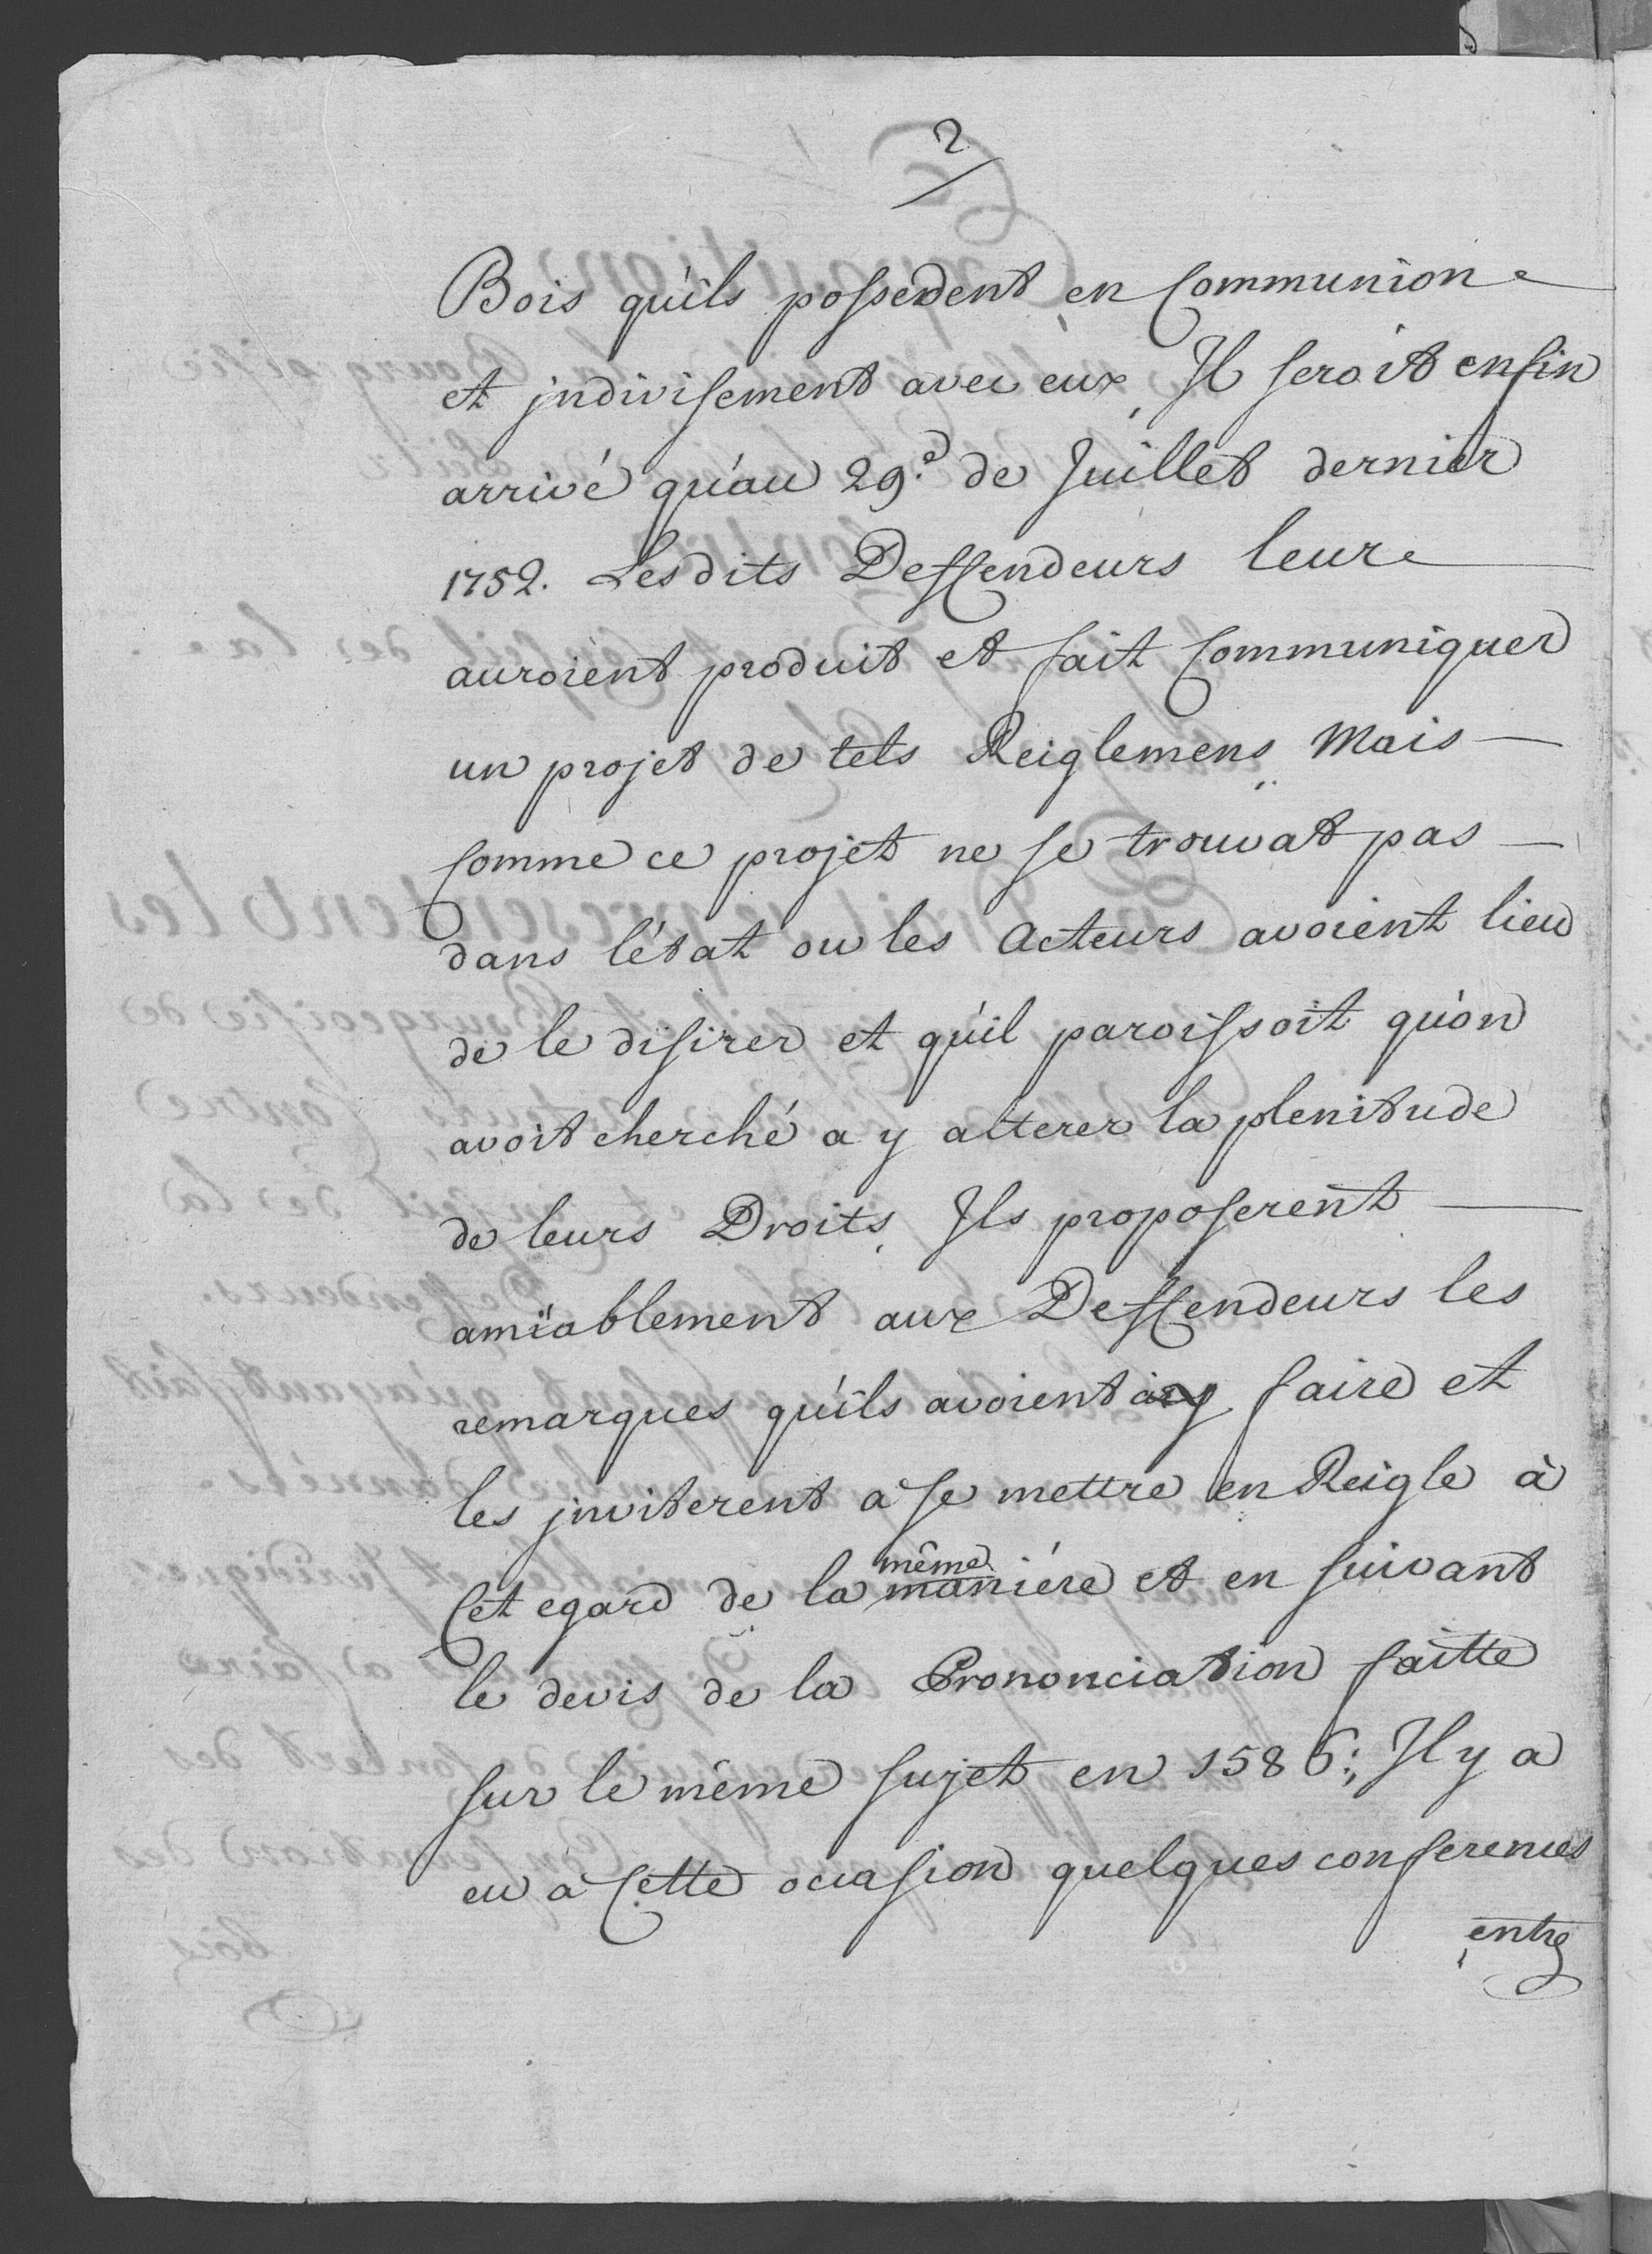 2
Bois qu'ils possedent en Communion
et jndivisement avec eux, Il seroit enfin
arrivé qu'au 29.e de Juillet dernier
1752. Lesdits Deffendeurs leur
auroient produit et fait Communiquer
un projet de tels Reiglemens, Mais
Comme ce projet ne se trouvat pas
dans l'état ou les Acteurs avoient lieu
de le disirer et qu'il paroissoit qu'on
avoit cherché a y alterer la plenitude
de leurs Droits, Ils proposerent
amïablement aux Deffendeurs les
remarques qu'ils avoient à y faire et
les jnviterent à se mettre en Reigle à
Cet egard de la même maniére et en suivant
le devis de la Prononciation faitte
sur le même sujet en 1586; Il y a
eu à Cette ocasion quelques conferences
entre